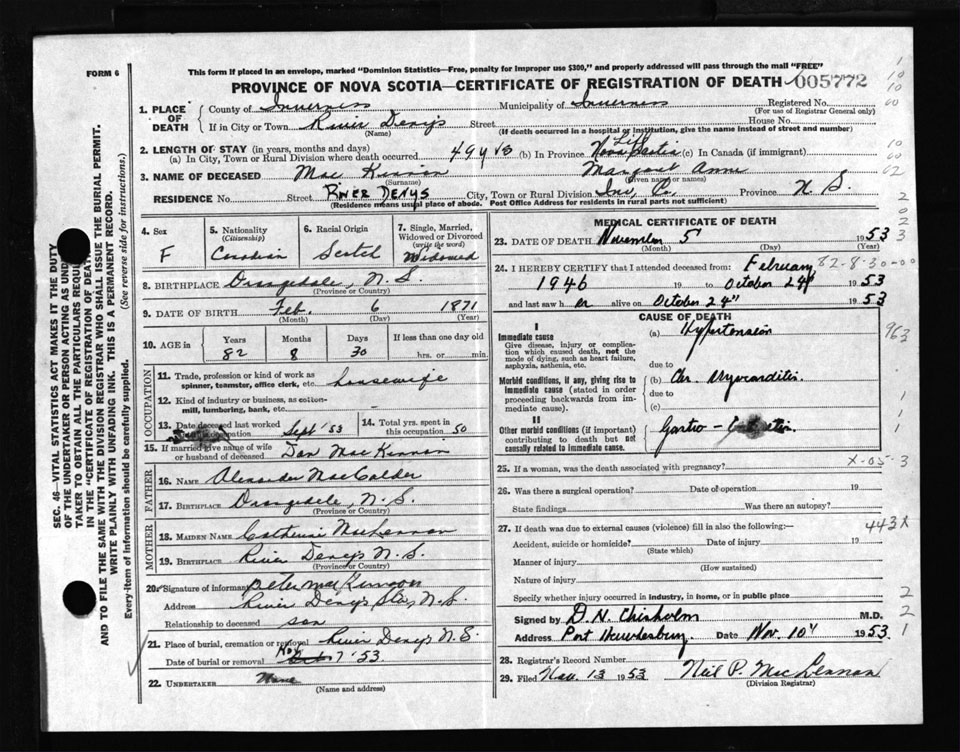 FORM 6
This form if placed in an envelope, marked "Dominion Statistics—Free, penalty for improper use $300," and properly addressed will pass through the mail "FREE"
PROVINCE OF NOVA SCOTIA—CERTIFICATE OF REGISTRATION OF DEATH 005772
1. PLACE OF DEATH
County of Inverness Municipality of Inverness Registered No.
(For use of Registrar General only)
If in City or Town River Denys Street House No.
(Name) (If death occurred in a hospital or institution, give the name instead of street and number)
2. LENGTH OF STAY (in years, months and days) Life
(a) In City, Town or Rural Division where death occurred 49 yrs (b) In Province Nova Scotia (c) In Canada (if immigrant)
3. NAME OF DECEASED Mac Kinnon Annie
(Surname) (Given name or names)
RESIDENCE No. Street RIVER DENYS City, Town or Rural Division Inv. Co. Province N S.
(Residence means usual place of abode. Post Office Address for residents in rural parts not sufficient)
4. Sex
F
5. Nationality
(Citizenship)
Canadian
6. Racial Origin
Scotch
7. Single, Married, Widowed or Divorced
(write the word)
Widowed
8. BIRTHPLACE N. S.
(Province or Country)
9. DATE OF BIRTH Feb. 6 1871
(Month) (Day) (Year)
10. AGE in Years Months Days If less than one day old
82 8 30 hrs. or min.
OCCUPATION
11. Trade, profession or kind of work as spinner, teamster, office clerk, etc. housewife
12. Kind of industry or business, as cotton-mill, lumbering, bank, etc.
13. Date deceased last worked Sept '53
14. Total yrs. spent in this occupation 50
15. If married give name of wife or husband of deceased Dan Mac Kinnon
FATHER
16. NAME Alexander
17. BIRTHPLACE N. S.
(Province or Country)
MOTHER
18. MAIDEN NAME Catherine MacLennan
19. BIRTHPLACE River Denys N. S.
(Province or Country)
20. Signature of informant Peter MacKinnon
Address River Denys Sta, N. S.
Relationship to deceased son
21. Place of burial, cremation or removal River Denys N. S.
Date of burial or removal Nov 7 '53
22. UNDERTAKER None
(Name and address)
MEDICAL CERTIFICATE OF DEATH
23. DATE OF DEATH November 5 1953
(Month) (Day) (Year)
24. I HEREBY CERTIFY that I attended deceased from: February 82-8-30-00
1946 to October 24" 1953
and last saw her alive on October 24" 1953
CAUSE OF DEATH
I
Immediate cause (a) Hypertension 963
Give disease, injury or complication which caused death, not the mode of dying, such as heart failure, asphyxia, asthenia, etc.
due to
Morbid conditions, if any, giving rise to immediate cause (stated in order proceeding backwards from immediate cause).
(b) Chr. Myocarditis.
due to
(c)
II
Other morbid conditions (if important) contributing to death but not causally related to immediate cause.
Gastro-
25. If a woman, was the death associated with pregnancy? X-05-3
26. Was there a surgical operation? Date of operation 19
State findings Was there an autopsy?
27. If death was due to external causes (violence) fill in also the following:— 443X
Accident, suicide or homicide? Date of injury 19
(State which)
Manner of injury
(How sustained)
Nature of injury
Specify whether injury occurred in industry, in home, or in public place
Signed by D. N. Chisholm M.D.
Address Port Hawkesbury. Date Nov. 10" 1953
28. Registrar's Record Number
29. Filed Nov. 13 1953 Neil P. MacLennan
(Division Registrar)
SEC. 46—VITAL STATISTICS ACT MAKES IT THE DUTY
OF THE UNDERTAKER OR PERSON ACTING AS UNDER
TAKER TO OBTAIN ALL THE PARTICULARS REQUI
IN THE "CERTIFICATE OF REGISTRATION OF DEATH
AND TO FILE THE SAME WITH THE DIVISION REGISTRAR WHO SHALL ISSUE THE BURIAL PERMIT.
WRITE PLAINLY WITH UNFADING INK. THIS IS A PERMANENT RECORD.
Every item of information should be carefully supplied. (See reverse side for instructions.)